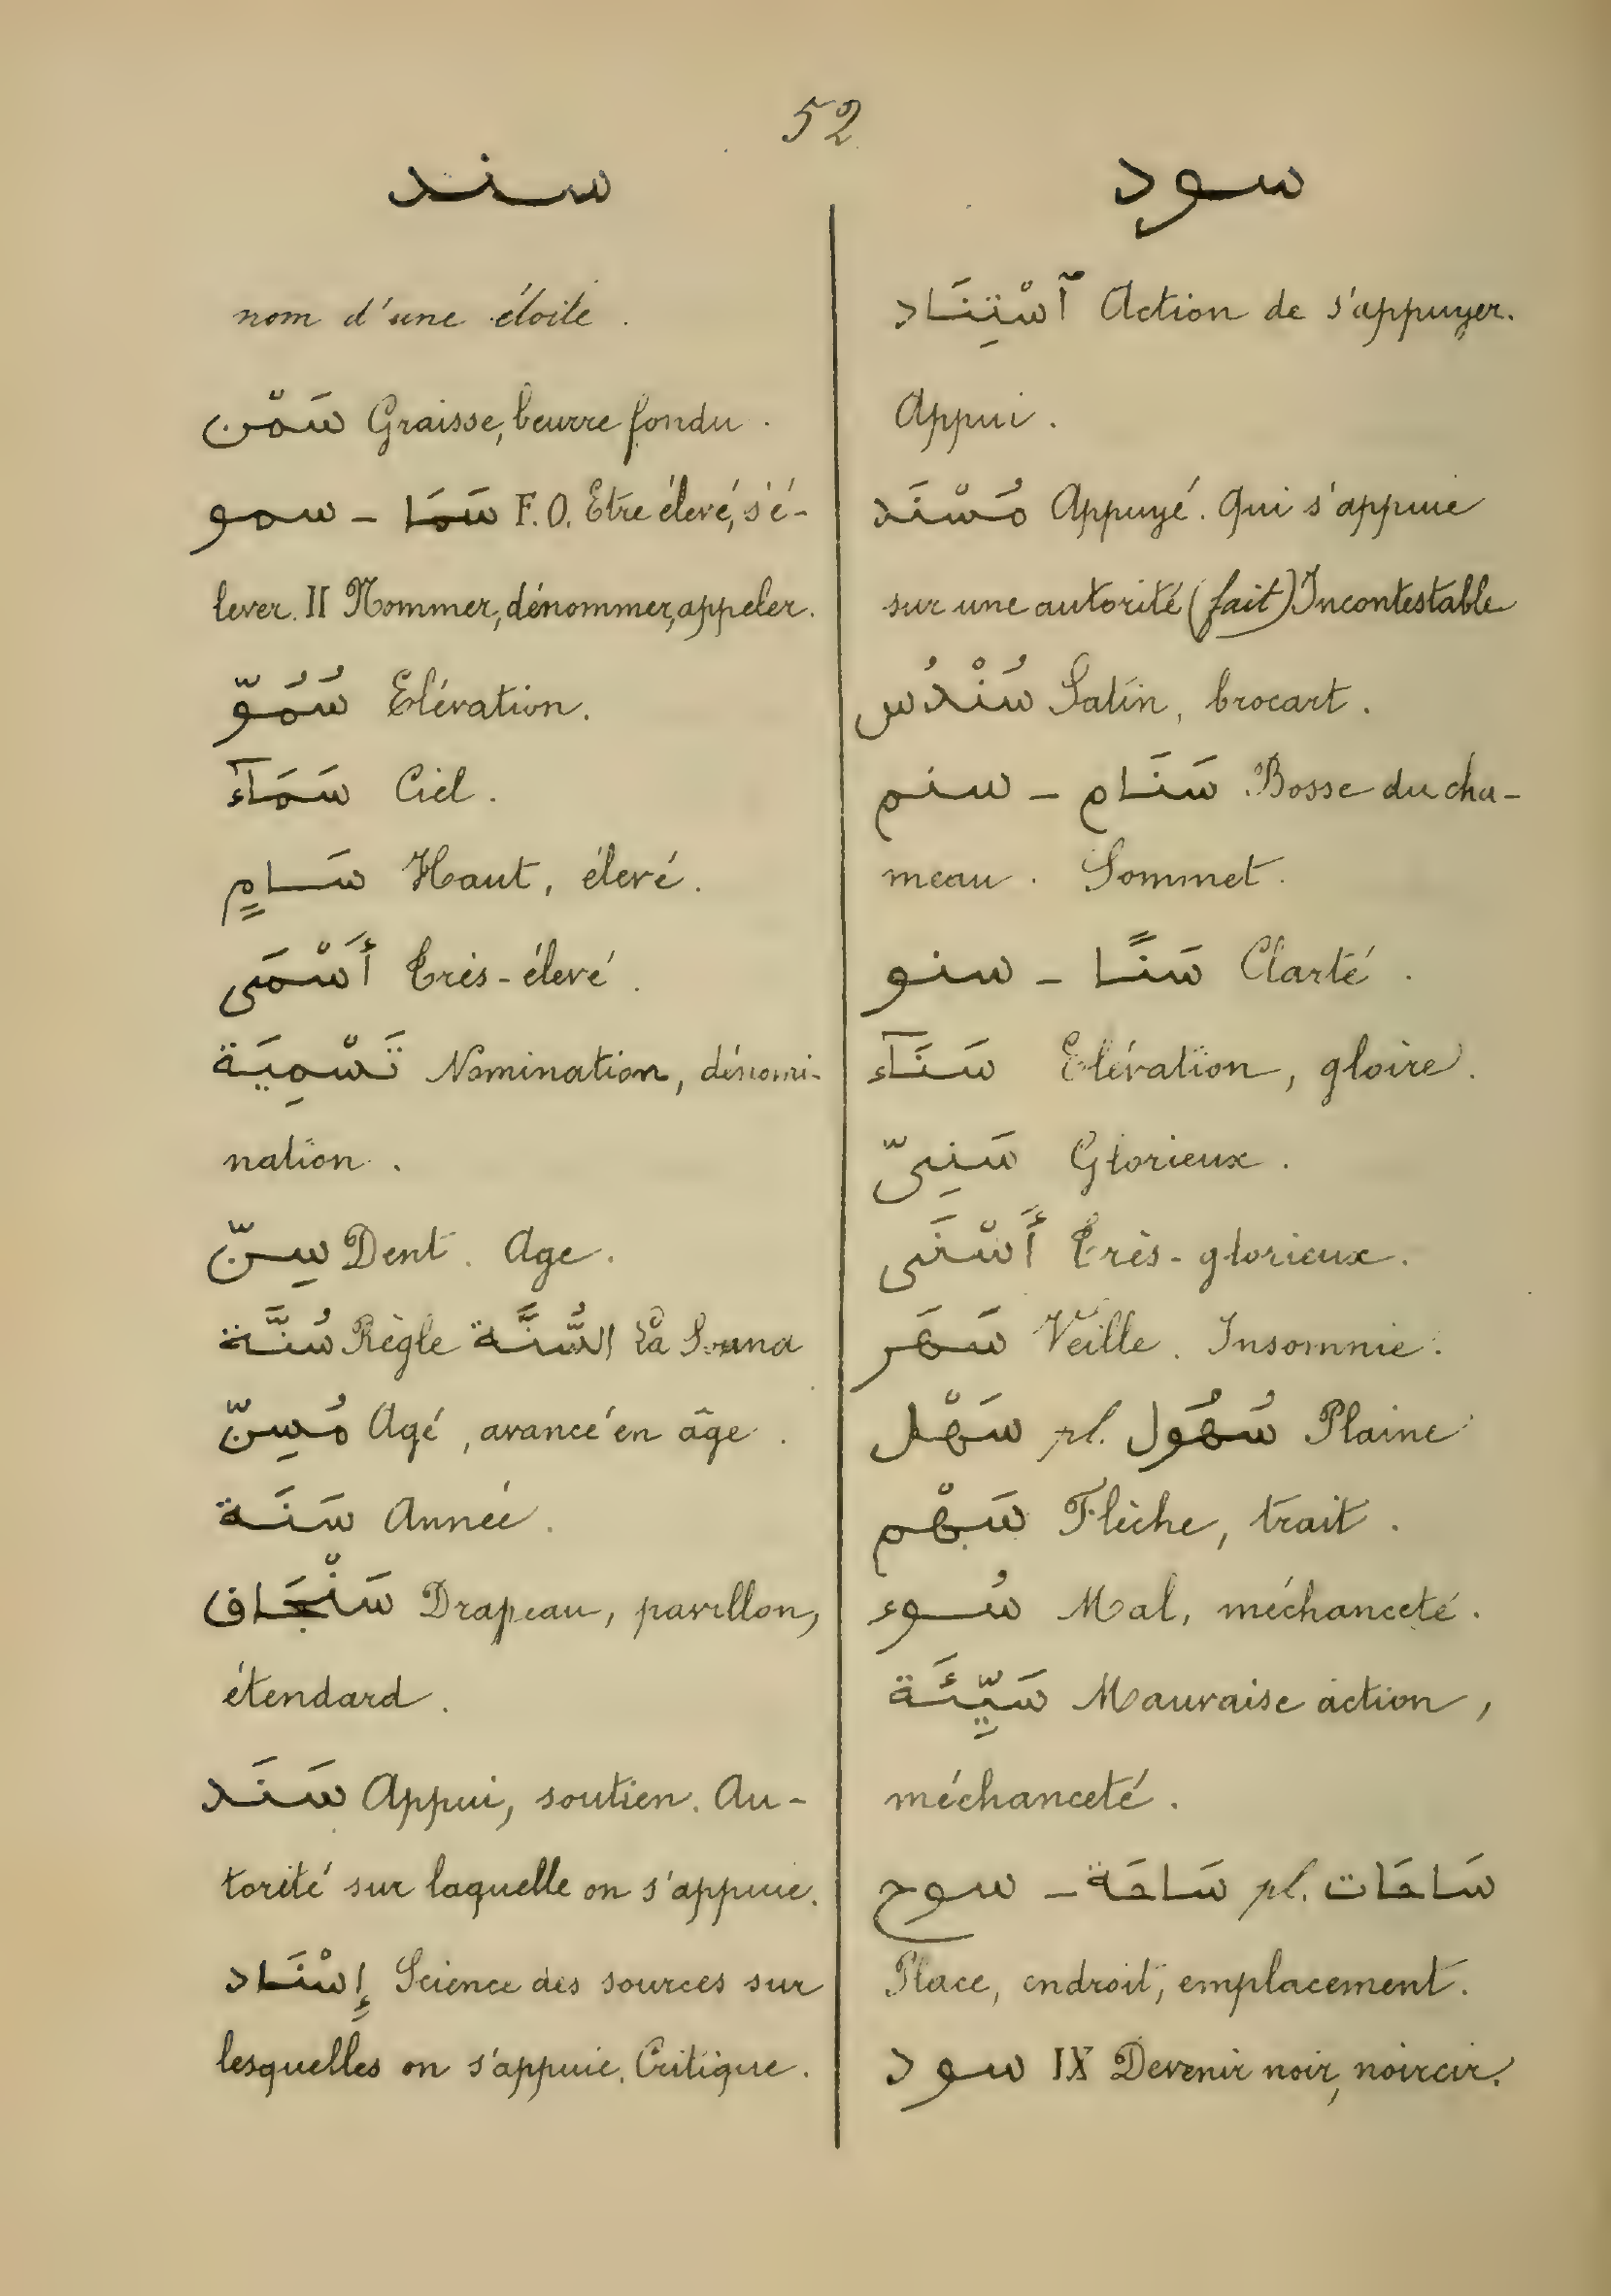 52
سند
nom d'une étoile.
سَمْن Graisse, beurre fondu.
سمو – سَمَا F. O. Etre élevé, s'é-
lever. II Nommer, dénommer, appeler.
سُمُوّ Elévation.
سَمَآء Ciel.
سَامٍ Haut, élevé.
أَسْمَى Très-élevé.
تَسْمِيَة Nomination, dénomi-
nation.
سِنّ Dent. Age.
سُنَّة Règle السُّنَّة la Sounna
مُسِنّ Agé, avancé en âge.
سَنَة Année.
سَنْجَاق Drapeau, pavillon,
étendard.
سَنَد Appui, soutien. Au-
torité sur laquelle on s'appuie.
إِسْنَاد Science des sources sur
lesquelles on s'appuie. Critique.
سود
آسْتِنَاد Action de s'appuyer.
Appui.
مُسْنَد Appuyé. Qui s'appuie
sur une autorité (fait) Incontestable
سُنْدُس Satin, brocart.
سنم – سَنَام Bosse du cha-
meau. Sommet.
سنو – سَنًا Clarté.
سَنَآء Elévation, gloire.
سَنِىّ Glorieux.
أَسْنَى Très-glorieux.
سَهَر Veille. Insomnie.
سَهْل pl. سُهُول Plaine
سَهْم Flèche, trait.
سُوء Mal, méchanceté.
سَيِّئَة Mauvaise action,
méchanceté.
سوح – سَاحَة pl. سَاحَات
Place, endroit, emplacement.
سود IX Devenir noir, noircir.